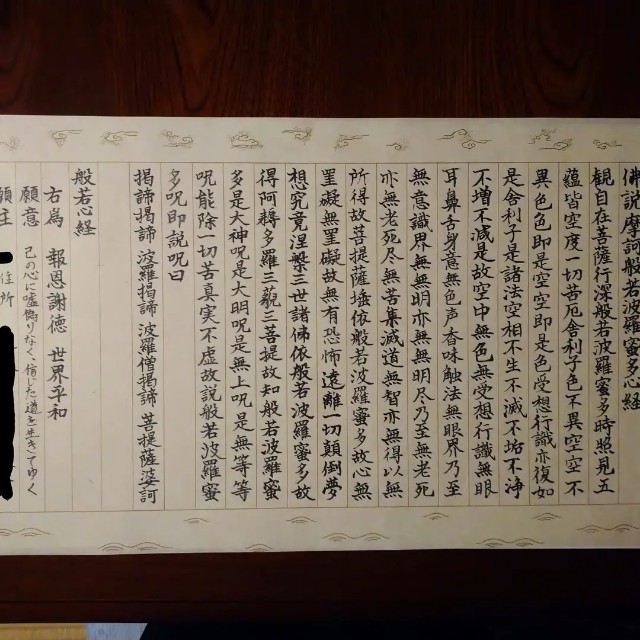 佛説摩訶般若波羅蜜多心経
観自在菩薩行深般若波羅蜜多時照見五
蘊皆空度一切苦厄舎利子色不異空空不
異色色即是空空即是色受想行識亦復如
是舎利子是諸法空相不生不滅不垢不浄
不増不減是故空中無色無受想行識無眼
耳鼻舌身意無色声香味触法無眼界乃至
無意識界無無明亦無無明尽乃至無老死
亦無老死尽無苦集滅道無智亦無得以無
所得故菩提薩埵依般若波羅蜜多故心無
罣礙無罣礙故無有恐怖遠離一切顛倒夢
想究竟涅槃三世諸佛依般若波羅蜜多故
得阿耨多羅三藐三菩提故知般若波羅蜜
多是大神呪是大明呪是無上呪是無等等
呪能除一切苦真実不虚故説般若波羅蜜
多呪即説呪曰
掲諦掲諦 波羅掲諦 波羅僧掲諦 菩提薩婆訶
般若心経
右為 報恩謝徳 世界平和
願意 己の心に嘘偽りなく、信じた道を生きてゆく
願主 住所